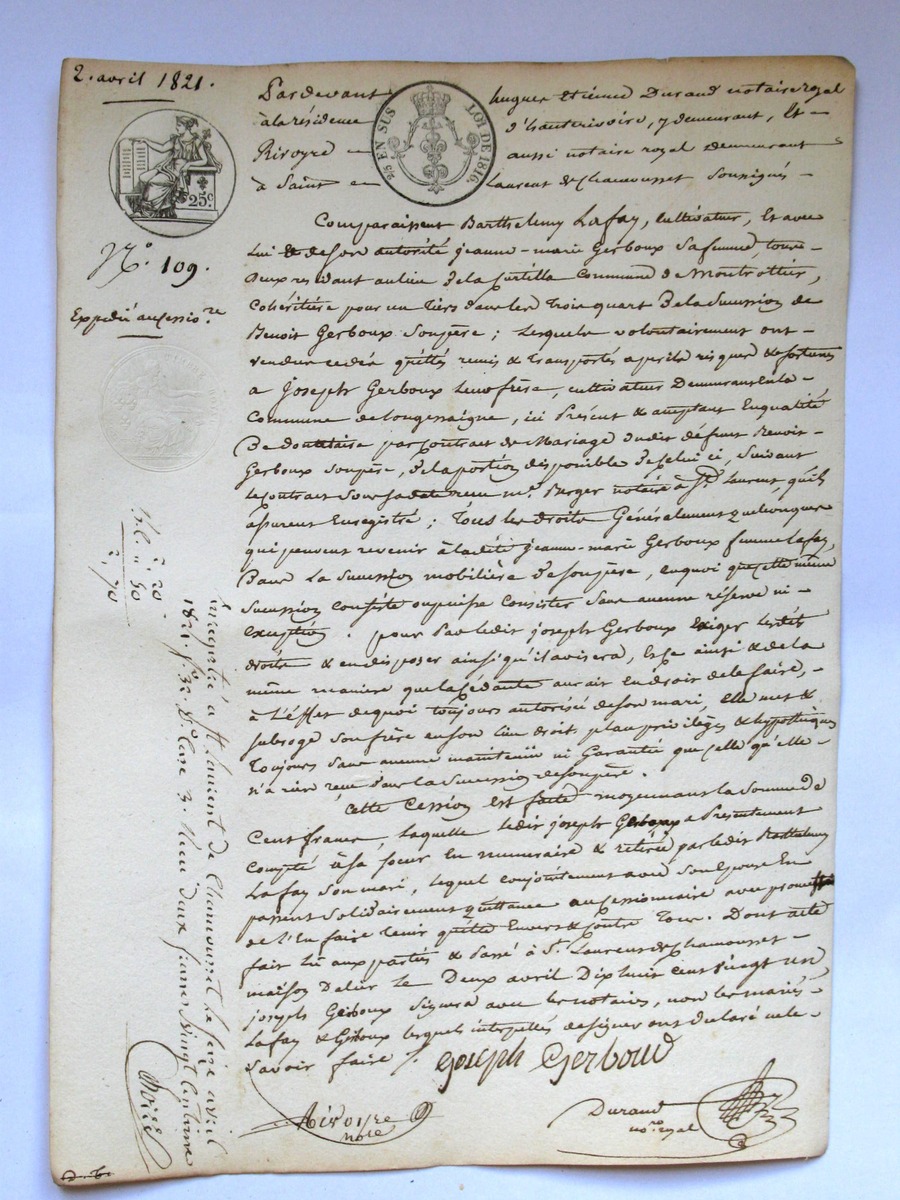 2. avril 1821.
25c.
N.° 109.
Expédié au cessio.re
¼ EN SUS LOI DE 1816
Pardevant hugues Etienne Durand notaire royal
à la résidence d'hauterivoire, y demeurant, Et
Rivoyre aussi notaire royal demeurant
à Saint Laurent de chamousset soussignés
Comparaissent Barthelemy Lafay, Cultivateur, Et avec
Lui & de son autorité jeanne-marie Gerboux sa femme, tous
deux résidant au lieu de la Commune de Montrottier,
Cohéritière pour un tiers dans les Trois quart de la Succession de
Benoit Gerboux Son père ; Lesquels volontairement ont
vendu cédé quittés remis & transportés a périls risques & fortunes
a Joseph Gerboux leur frère, cultivateur Demeurant en la
Commune de Longessaigne, ici Présent & acceptant En qualité
De donataire par Contrat de Mariage dudit défunt Benoit
Gerboux son père, de la portion disponible de celui ci, Suivant
Le Contrat Sous sa date reçu m.e Berger notaire à S.t Laurent, qu'ils
assurent Enregistré ; Tous les droits Généralement quelconques
qui peuvent revenir à ladite jeanne-marie Gerboux femme Lafay,
Dans La Succession mobilière de son père, en quoi que cette même
Succession Consiste ou puisse Consister Sans aucune réserve ni
Exception. pour Par ledit joseph Gerboux Exiger lesdits
droits & en disposer ainsi qu'il avisera, Et Ce ainsi & de la
même manière que la Cédante aurait En droit de le faire,
à L'Effet de quoi toujours autorisée de son mari, Elle met &
subroge son frère en son lieu droits place privilèges & hypothèques
Toujours sans aucune maintenüe ni Garantie que Celle qu'elle
n'a rien reçu dans la Succession de son père.
Cette Cession est faite moyennant la Somme de
Cent francs, Laquelle ledit joseph Gerboux a Présentement
Compté à sa soeur En numéraire & retirée par ledit Barthelemy
Lafay Son mari, lequel conjointement avec son Epouse En
passent solidairement quittance au cessionnaire avec promesse
de l'En faire tenir quitte Envers & Contre Tous. Dont acte
fait lû aux parties & Passé à S.t Laurent de Chamousset
maison le Deux avril Dix huit cent vingt un
joseph Gerboux Signera avec les notaires, non les mariés
Lafay & Gerboux lesquels interpellés de signer ont déclaré ne le
Savoir faire ./.
Joseph Gerboud
Rivoyre
not.e
Durand
no.re royal
à 20
à 50
à, 70
Enregistré à St Laurent de Chamousset le seize avril
1821. f.° 32 R.° Case 3. Reçu deux francs vingt centimes